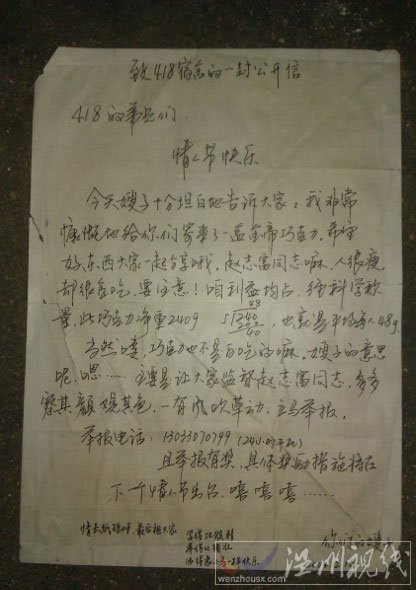 致418宿舍的一封公开信
418的弟兄们：
情人节快乐
今天嫂子十分坦白地告诉大家：我非常
慷慨地给你们寄来了一盒金帝巧克力，希望
好东西大家一起分享哦，赵志富同志嘛，人很瘦
却很贪吃，要注意！咱利益均占，经科学称
量，此巧克力净重240g
48
5 240
40
，也就是平均每人48g
当然喽，巧克力也不是白吃的嘛，嫂子的意思
呢，嗯……主要是让大家监督赵志富同志，多多
察其颜观其色，一有风吹草动，立马举报。
举报电话：13033070799（24小时开机）
且举报有奖，具体奖励措施将在
下个情人节公布，嘻嘻嘻……
情长纸短 最后祝大家
快乐
你们的嫂子
温州视线
wenzhousx.com